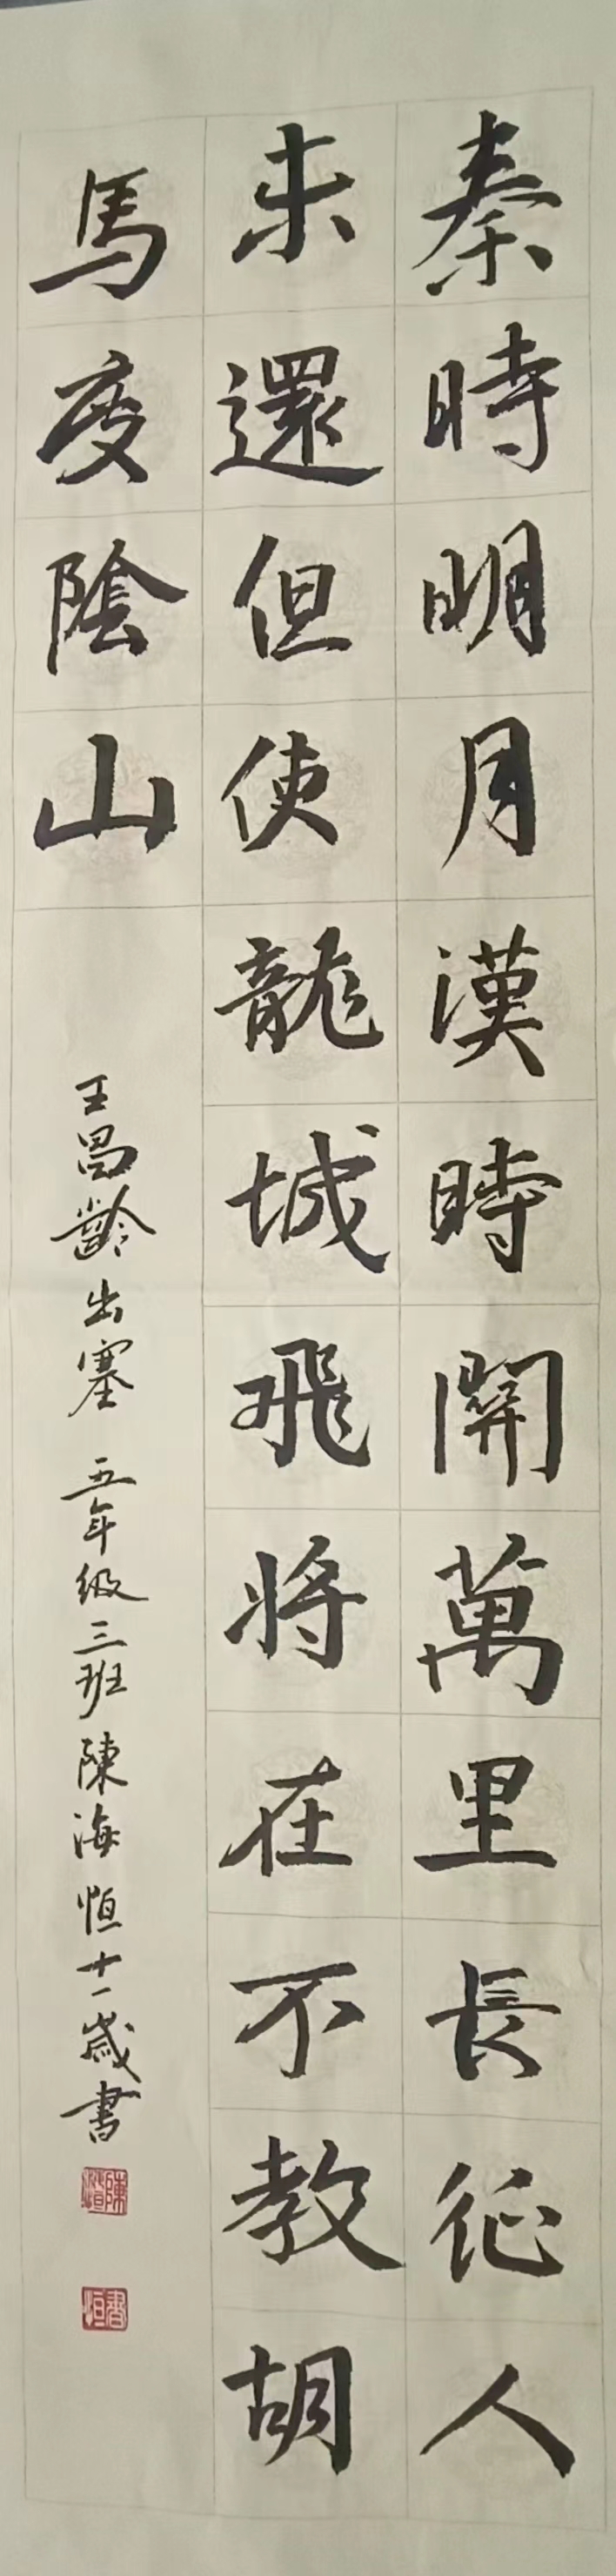 秦時明月漢時關萬里長征人
未還但使龍城飛將在不教胡
馬度陰山
王昌齡出塞 五年級三班陳海恒十一歲書